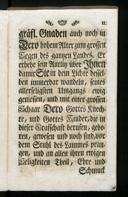 11
gräfl. Gnaden auch noch in
Dero hohem Alter zum grossen
Segen des gantzen Landes. Er
erhebe sein Antlitz über Ihnen
damit Sie in dem Lichte dessel-
ben immerdar wandeln, seines
allerseligsten Umgangs ewig
geniessen, und mit einer grossen
Schaar Dero Gottes Knech-
te, und Gottes Kinder, die in
dieser Grafschaft berufen, gebo-
ren, gewesen und noch sind, um
dem Stuhl des Lammes pran-
gen, und an allen ihren ewigen
Seligkeiten Theil, Ehre und
Schmuck